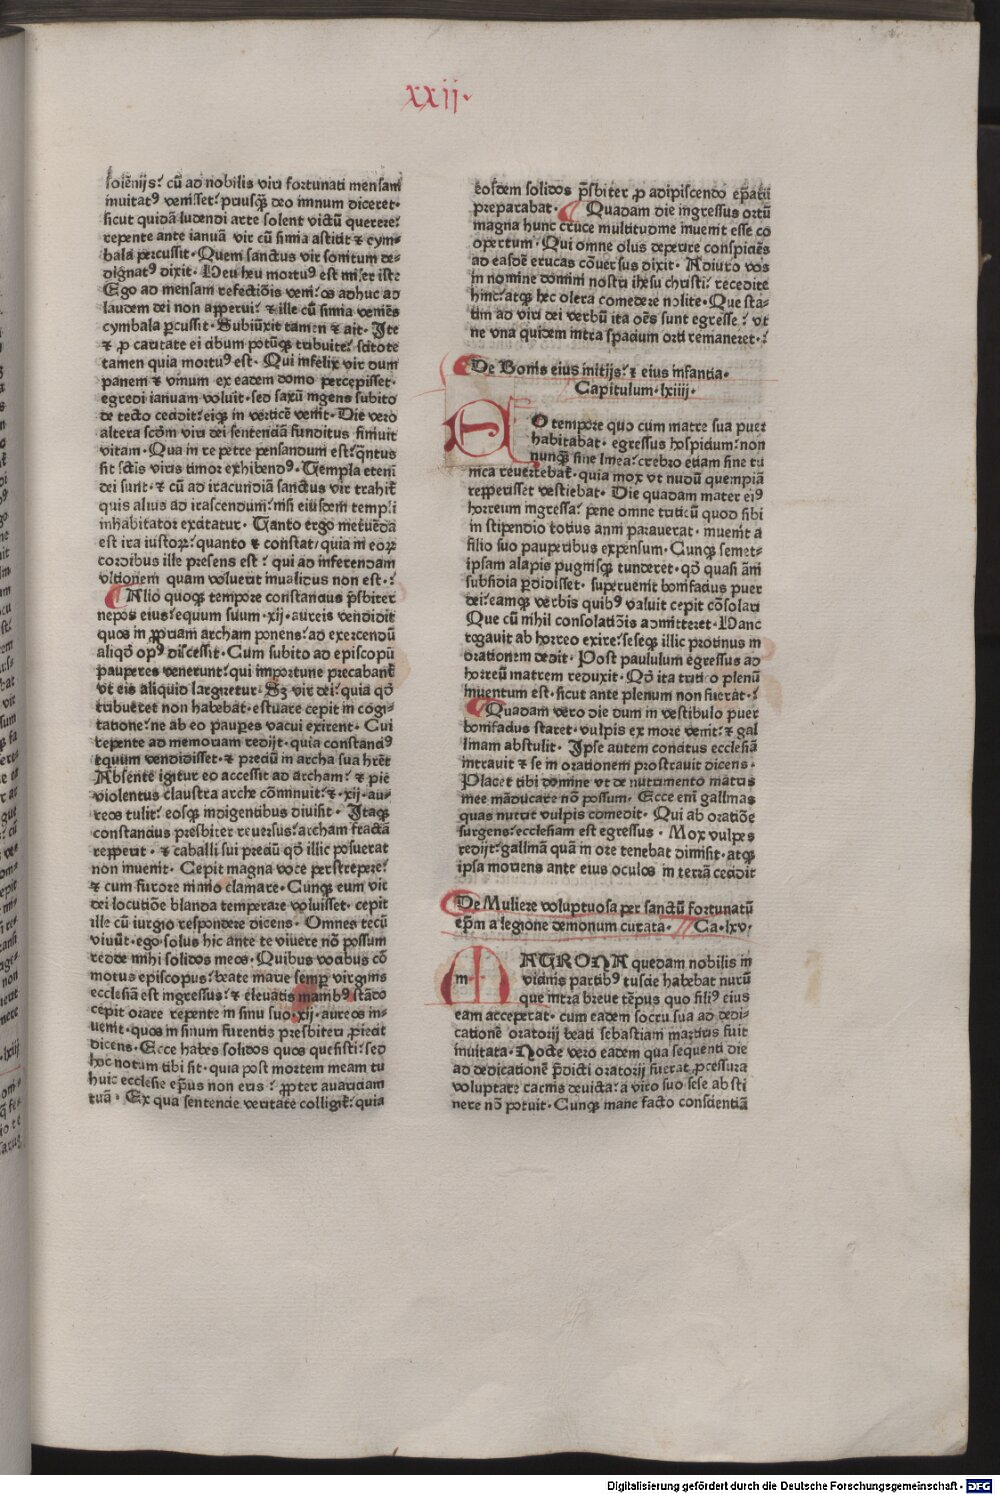 xxij.
loieñijs? cū ad nobilis viri fortunati mensam
inuitatꝰ venisset? priusqꝫ deo imnum diceret.
sicut quidā ludendi arte solent victū querere?
repente ante ianuā vir cū simia astitit ⁊ cym-
bala percussit. Quem sanctus vir sonitum de-
dignatꝰ dixit. Heu heu mortuꝰ est miser iste
Ego ad mensam refectiōis veni? os adhuc ad
laudem dei non apperui? ⁊ ille cū simia veniēs
cymbala ꝑcussit. Subiūxit tamen ⁊ ait. Ite
⁊ ꝓ caritate ei cibum potūqꝫ tribuite? scitote
tamen quia mortuꝰ est. Qui infelix vir dum
panem ⁊ vinum ex eadem domo percepisset.
egredi ianuam voluit. sed saxū ingens subito
de tecto cecidit? eiqꝫ in verticē venit. Die vero
altera scōm viri dei sentenciā funditus finiuit
vitam. Qua in re petre pensandum est? qntus
sit sctis viris timor exhibendꝰ. Templa etenī
dei sunt. ⁊ cū ad iracundiā sanctus vir trahit̄
quis alius ad irascendum? nisi eiusdem templi
inhabitator excitatur. Tanto ergo metuēda
est ira iustoꝝ? quanto ⁊ constat/ quia in eoꝝ
cordibus ille presens est? qui ad inferendam
vltionem quam voluerit inualidus non est.?
Alio quoqꝫ tempore constancius p̄sbiter
nepos eius? equum suum. xij. aureis vendidit
quos in ꝓpriam archam ponens? ad exercendū
aliqō opꝰ discessit. Cum subito ad episcopū
pauperes venerunt? qui importune precabant̄
vt eis aliquid largiretur. Sꝫ vir dei? quia qō
tribueret non habebat. estuare cepit in cogi-
tatione? ne ab eo pauꝑes vacui exirent. Cui
repente ad memoriam redijt. quia constanciꝰ
equum vendidisset. ⁊ preciū in archa sua hrēt
Absente igitur eo accessit ad archam? ⁊ pie
violentus claustra arche cōminuit? ⁊. xij. au-
reos tulit? eosqꝫ indigentibus diuisit. Itaqꝫ
constancius presbiter reuersus? archam fractā
repperit. ⁊ caballi sui preciū qō illic posuerat
non inuenit. Cepit magna voce perstrepere?
⁊ cum furore nimio clamare. Cunqꝫ eum vir
dei locutiōe blanda temperare voluisset. cepit
ille cū iurgio respondere dicens. Omnes tecū
viuūt. ego solus hic ante te viuere nō possum
redde mihi solidos meos. Quibus vocibus cō
motus episcopus? beate marie semꝑ virginis
ecclesiā est ingressus? ⁊ eleuatis manibꝰ stādo
cepit orare repente in sinu suo. xij. aureos in-
uenit. quos in sinum furentis presbiteri ꝓiecit
dicens. Ecce habes solidos quos quesisti? sed
hoc notum tibi sit. quia post mortem meam tu
huic ecclesie ep̄us non eris? ꝓpter auariciam
tuā. Ex qua sentencie veritate colligit̄? quia
eosdem solidos p̄sbiter ꝓ adipiscendo ep̄atu
preparabat. Quadam die ingressus ortū
magna hunc eruce multitudine inuenit esse co
opertum. Qui omne olus deperire conspiciēs
ad easdē erucas cōuersus dixit. Adiuro vos
in nomine domini nostri ihesu christi? recedite
hinc? atqꝫ hec olera comedere nolite. Que sta-
tim ad viri dei verbū ita oēs sunt egresse? vt
ne vna quidem intra spacium orti remaneret.?
De Bonis eius initijs? ⁊ eius infantia.
Capitulum. lxiiij.
EO tempore quo cum matre sua puer
habitabat. egressus hospicium? non
nunqꝫ sine linea? crebro etiam sine tu
nica reuertebat̄. quia mox vt nudū quempiā
repperisset vestiebat. Die quadam mater eiꝰ
horreum ingressa? pene omne triticū quod sibi
in stipendio totius anni parauerat. inuenit a
filio suo pauperibus expensum. Cunqꝫ semet-
ipsam alapis pugnisqꝫ tunderet. qō quasi āni
subsidia ꝑdidisset. superuenit bonifacius puer
dei? eamqꝫ verbis quibꝰ valuit cepit cōsolari
Que cū nihil consolatiōis admitteret. Hanc
rogauit ab horreo exire? seseqꝫ illic protinus in
orationem dedit. Post paululum egressus ad
horreū matrem reduxit. Qō ita tritico plenū
inuentum est. sicut ante plenum non fuerat.?
Quadam vero die dum in vestibulo puer
bonifacius staret. vulpis ex more venit? ⁊ gal
linam abstulit. Ipse autem concitus ecclesiā
intrauit ⁊ se in orationem prostrauit dicens.
Placet tibi domine vt de nutrimento matris
mee māducare nō possum. Ecce eni gallinas
quas nutrit vulpis comedit. Qui ab oratiōe
surgens? ecclesiam est egressus. Mox vulpes
redijt? gallinā quā in ore tenebat dimisit. atqꝫ
ipsa moriens ante eius oculos in terrā cecidit
De Muliere voluptuosa per sanctū fortunatū
ep̄m a legione demonum curata. Ca. lxv.
MATRONA quedam nobilis in
m vicinis partibꝰ tuscie habebat nurū
que intra breue tēpus quo filiꝰ eius
eam acceperat. cum eadem socru sua ad dedi-
cationē oratorij beati sebastiani martiris fuit
inuitata. Nocte vero eadem qua sequenti die
ad dedicationē p̄dicti oratorij fuerat ꝓcessura
voluptate carnis deuicta? a viro suo sese absti
nere nō potuit. Cunqꝫ mane facto conscientiā
Digitalisierung gefördert durch die Deutsche Forschungsgemeinschaft - DFG